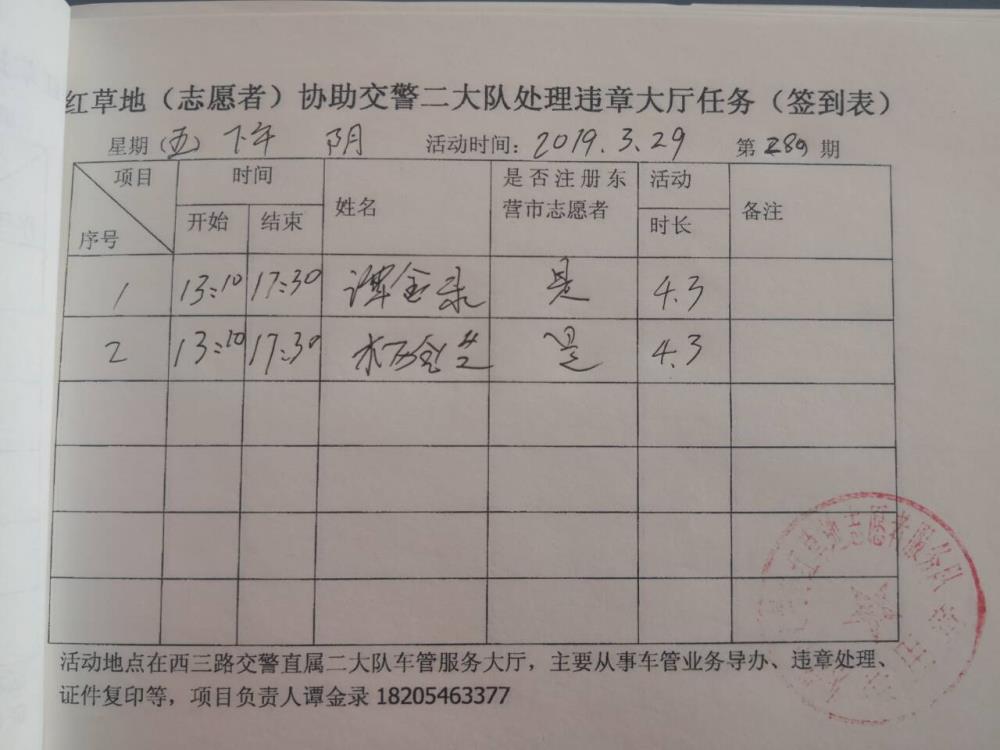 红草地（志愿者）协助交警二大队处理违章大厅任务（签到表）
星期（五） 下午 阴 活动时间：2019.3.29 第 280 期
项目 时间 姓名 是否注册东 活动 备注
开始 结束 营市志愿者 时长
序号
1 13:10 17:30 谭金录 是 4.3
2 13:10 17:30 是 4.3
活动地点在西三路交警直属二大队车管服务大厅，主要从事车管业务导办、违章处理、
证件复印等，项目负责人谭金录 18205463377
红草地志愿者服务队